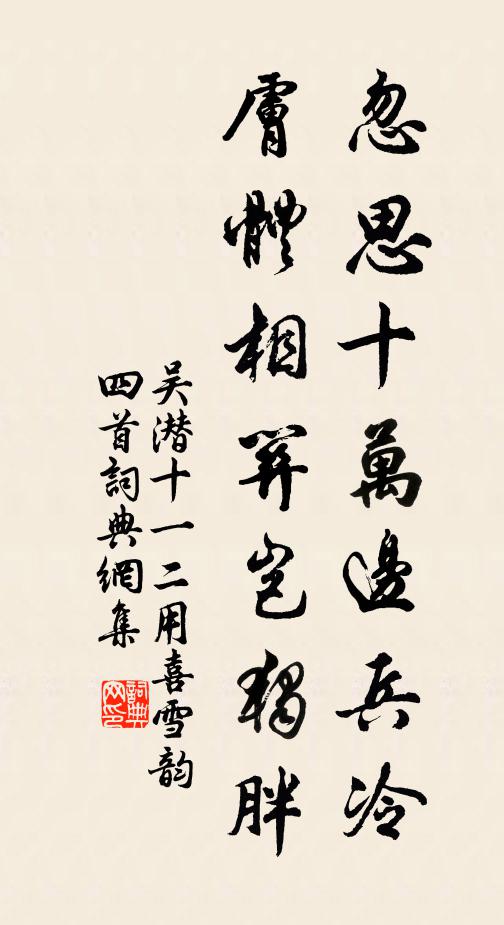 忽思十萬邊兵冷
膚體相關豈獨胖
吴潜十一二用喜雪韵
四首詞典網集
詞典网印